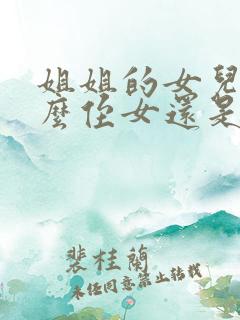 姐姐的女兒
麼侄女還是
裴桂蘭
未经同意禁止转载